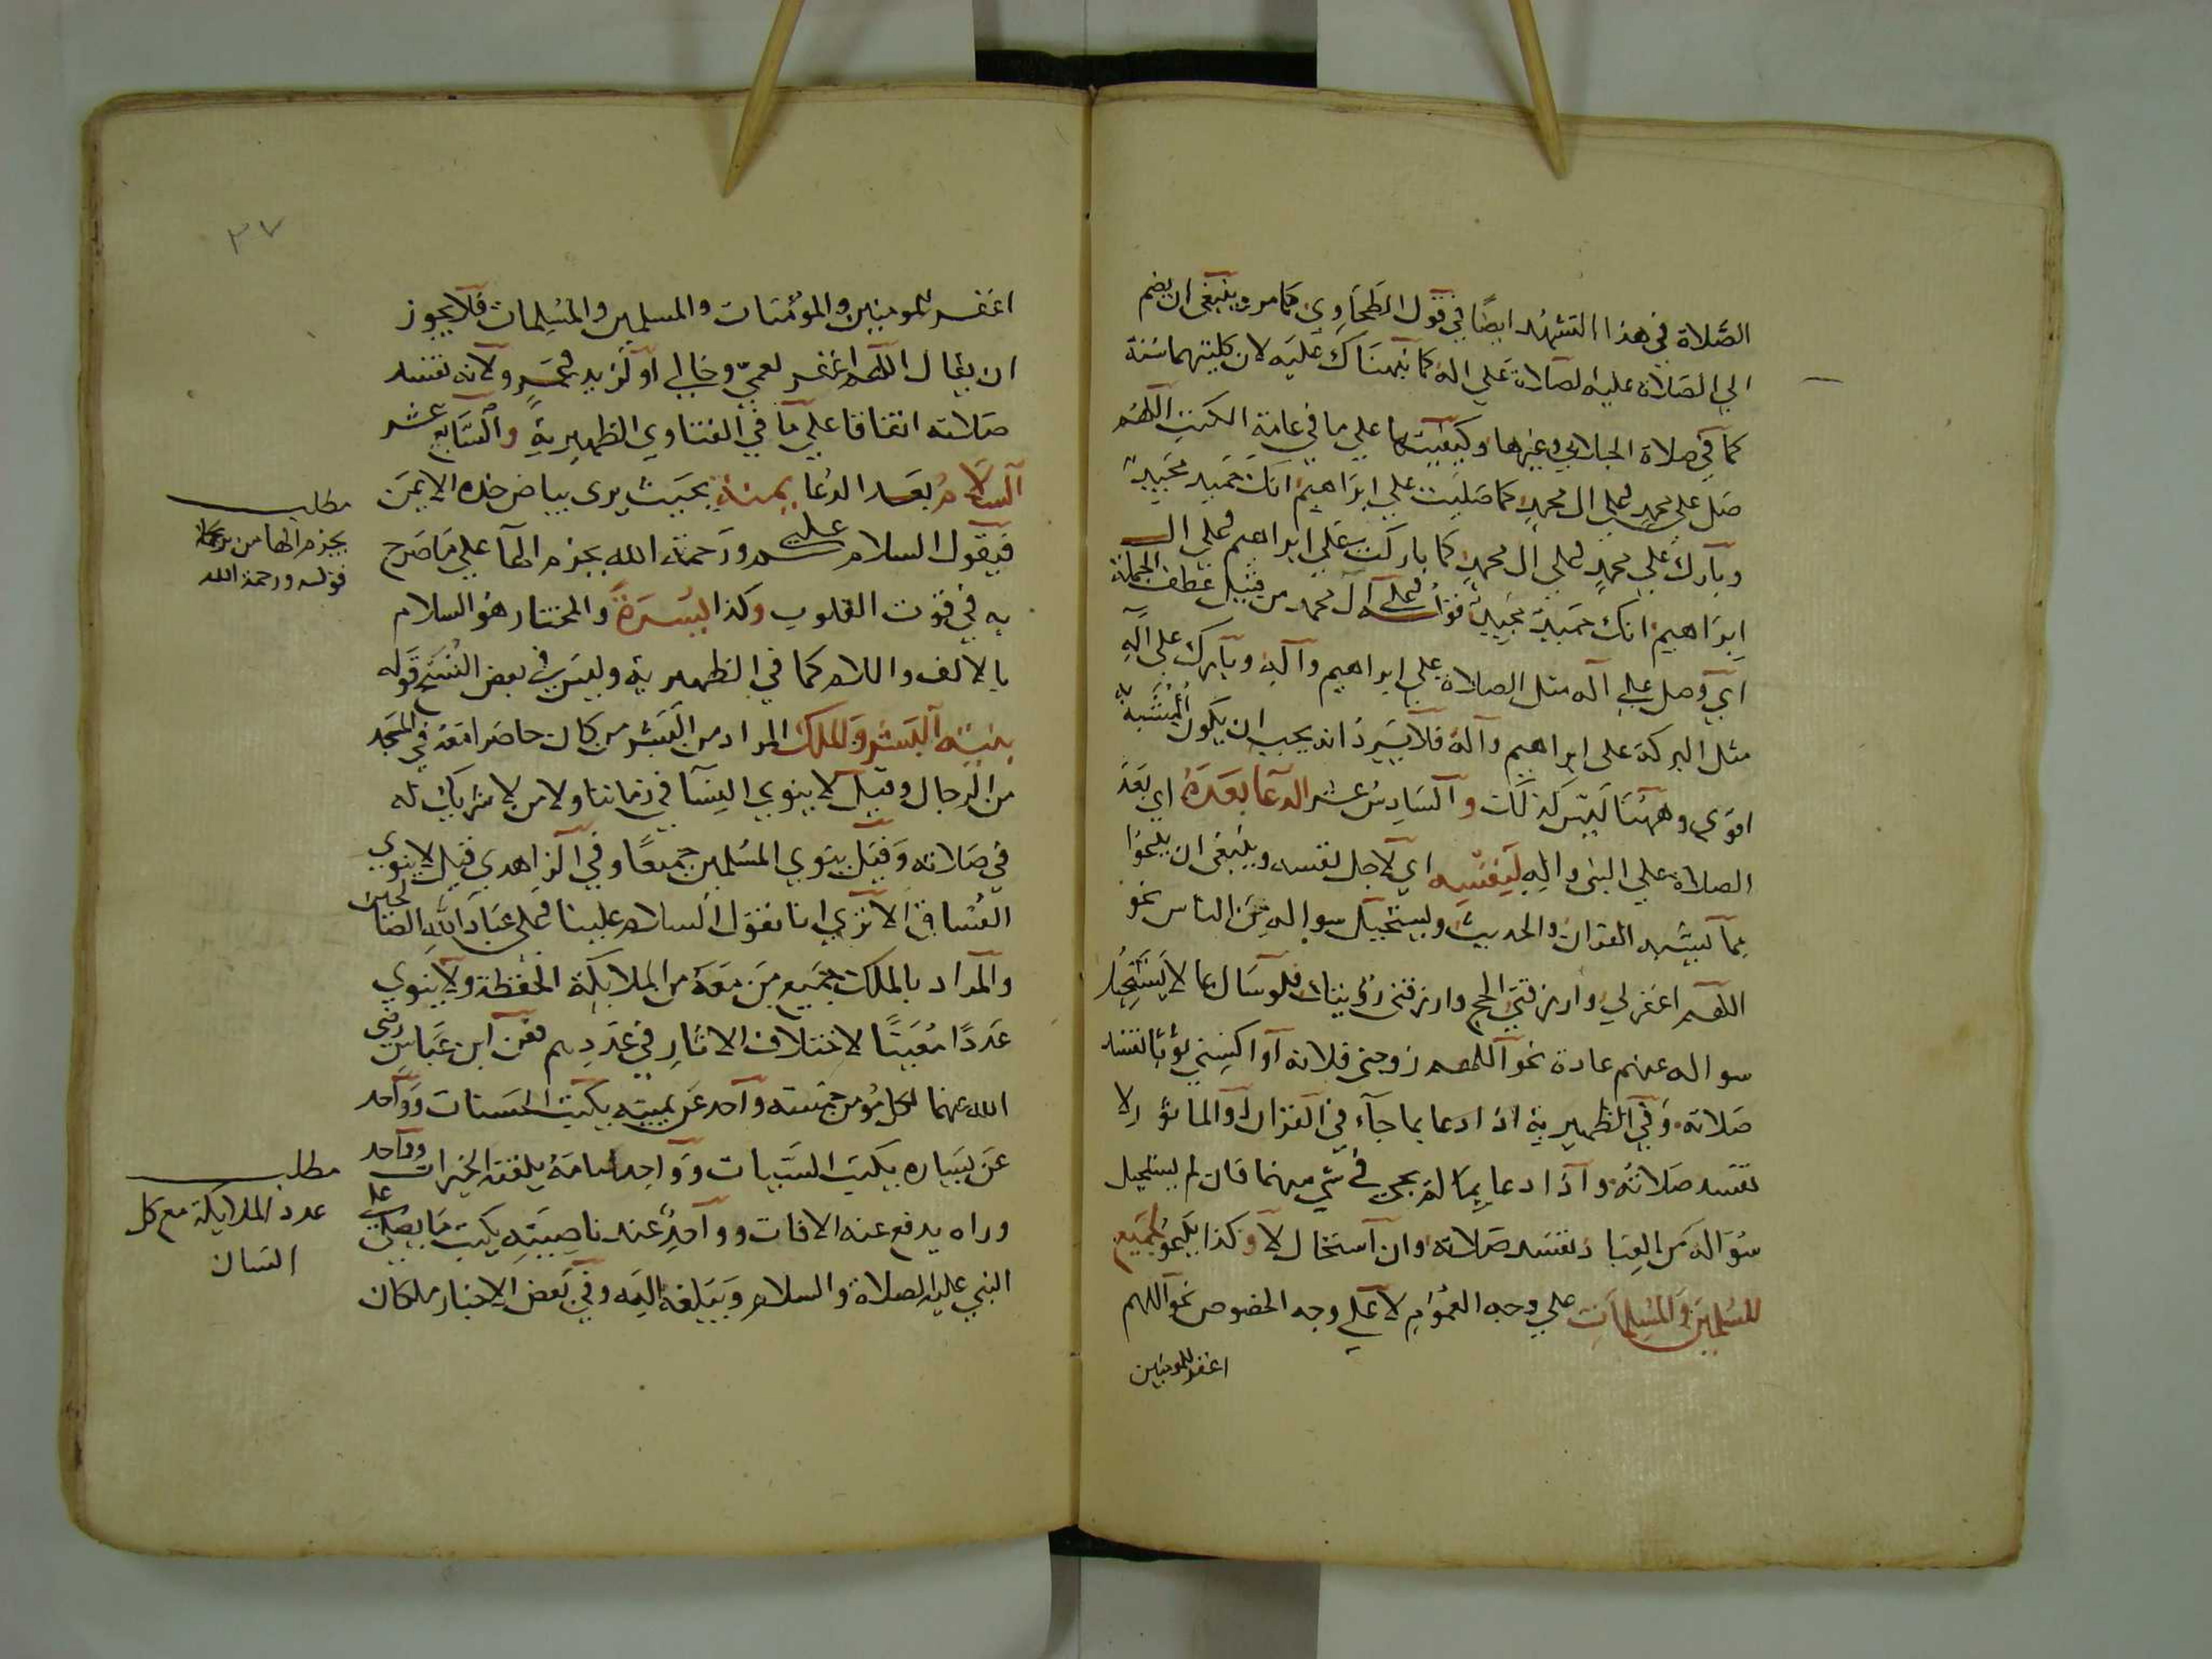 الصلاة في هذا التشهد ايضا في قول الطحاوي كما مر وينبغي ان يضم
الي الصلاة عليه الصلاة علي اله كما نبهناك عليه لان كليتهما سنة
كما في صلاة الجلابي وغيرها وكيفيتها علي ما في عامة الكتب اللهم
صل علي محمد وعلي ال محمد كما صليت علي ابراهيم انك حميد مجيد
وبارك علي محمد وعلي ال محمد كما باركت علي ابراهيم وعلي ال
ابراهيم انك حميد مجيد فقوله وعلي آل محمد من قبيل عطف الجملة
اي وصل علي آله مثل الصلاة علي ابراهيم وآله وبارك علي آله
مثل البركة علي ابراهيم وآله فلا يرد انه يجب ان يكون المشبه به
اقوي وههنا ليس كذلك والسادس عشر الدعا بعده اي بعد
الصلاة علي النبي واله لنفسه اي لاجل نفسه وينبغي ان يدعوا
بما يشبه القران والحديث ويستحيل سواله من الناس نحو
اللهم اغفرلي وارزقني الحج وارزقني رؤيتك فلو سال عما لا يستحيل
سواله عنهم عادة نحو اللهم زوجني فلانة او اكسني ثوبا تفسد
صلاته وفي الظهيرية اذا دعا بما جآء في القران او الماثور لا
تفسد صلاته واذا دعا بما لم يجئ في شي منهما فان لم يستحيل
سؤاله من العباد تفسد صلاته وان استحال لا وكذا يدعو لجميع
المسلمين والمسلمات علي وجه العموم لا علي وجه الخصوص نحو اللهم
اغفر للمومنين
٣٧
اغفر للمومنين والمؤمنات والمسلمين والمسلمات فلا يجوز
ان يقال اللهم اغفر لعمي وخالي او لزيد وعمرو لانه تفسد
صلاته اتفاقا علي ما في الفتاوي الظهيرية والسابع عشر
السلام بعد الدعا يمنة بحيث يري بياض خده الايمن
فيقول السلام عليكم ورحمة الله بجزم الهآ علي ما صرح
به في قوت القلوب وكذا يسرة والمختار هو السلام
بالالف واللام كما في الظهيرية وليس في بعض النسخ قوله
بنية البشر والملك المراد من البشر من كان حاضرا معه في المسجد
من الرجال وقيل لا ينوي النسآ في زماننا ولا من لا شريك له
في صلاته وقيل ينوي المسلمين جميعا وفي الزاهدي قيل لا ينوي
الفساق الا تري انا نقول السلام علينا وعلي عباد الله الصالحين
والمراد بالملك جميع من معه من الملايكة الحفظة ولا ينوي
عددا معينا لاختلاف الاثار في عددهم فعن ابن عباس رضي
الله عنهما لكل مؤمن خمسة واحد عن يمينه يكتب الحسنات وواحد
عن يساره يكتب السيات وواحد امامه يلقنه الخيرات وواحد
وراه يدفع عنه الافات وواحد عند ناصيته يكتب ما يصلي علي
النبي عليه الصلاة والسلام ويبلغه اليه وفي بعض الاخبار ملكان
مطلب
بجزم الها من
قوله ورحمة الله
مطلب
عدد الملايكة مع كل
انسان